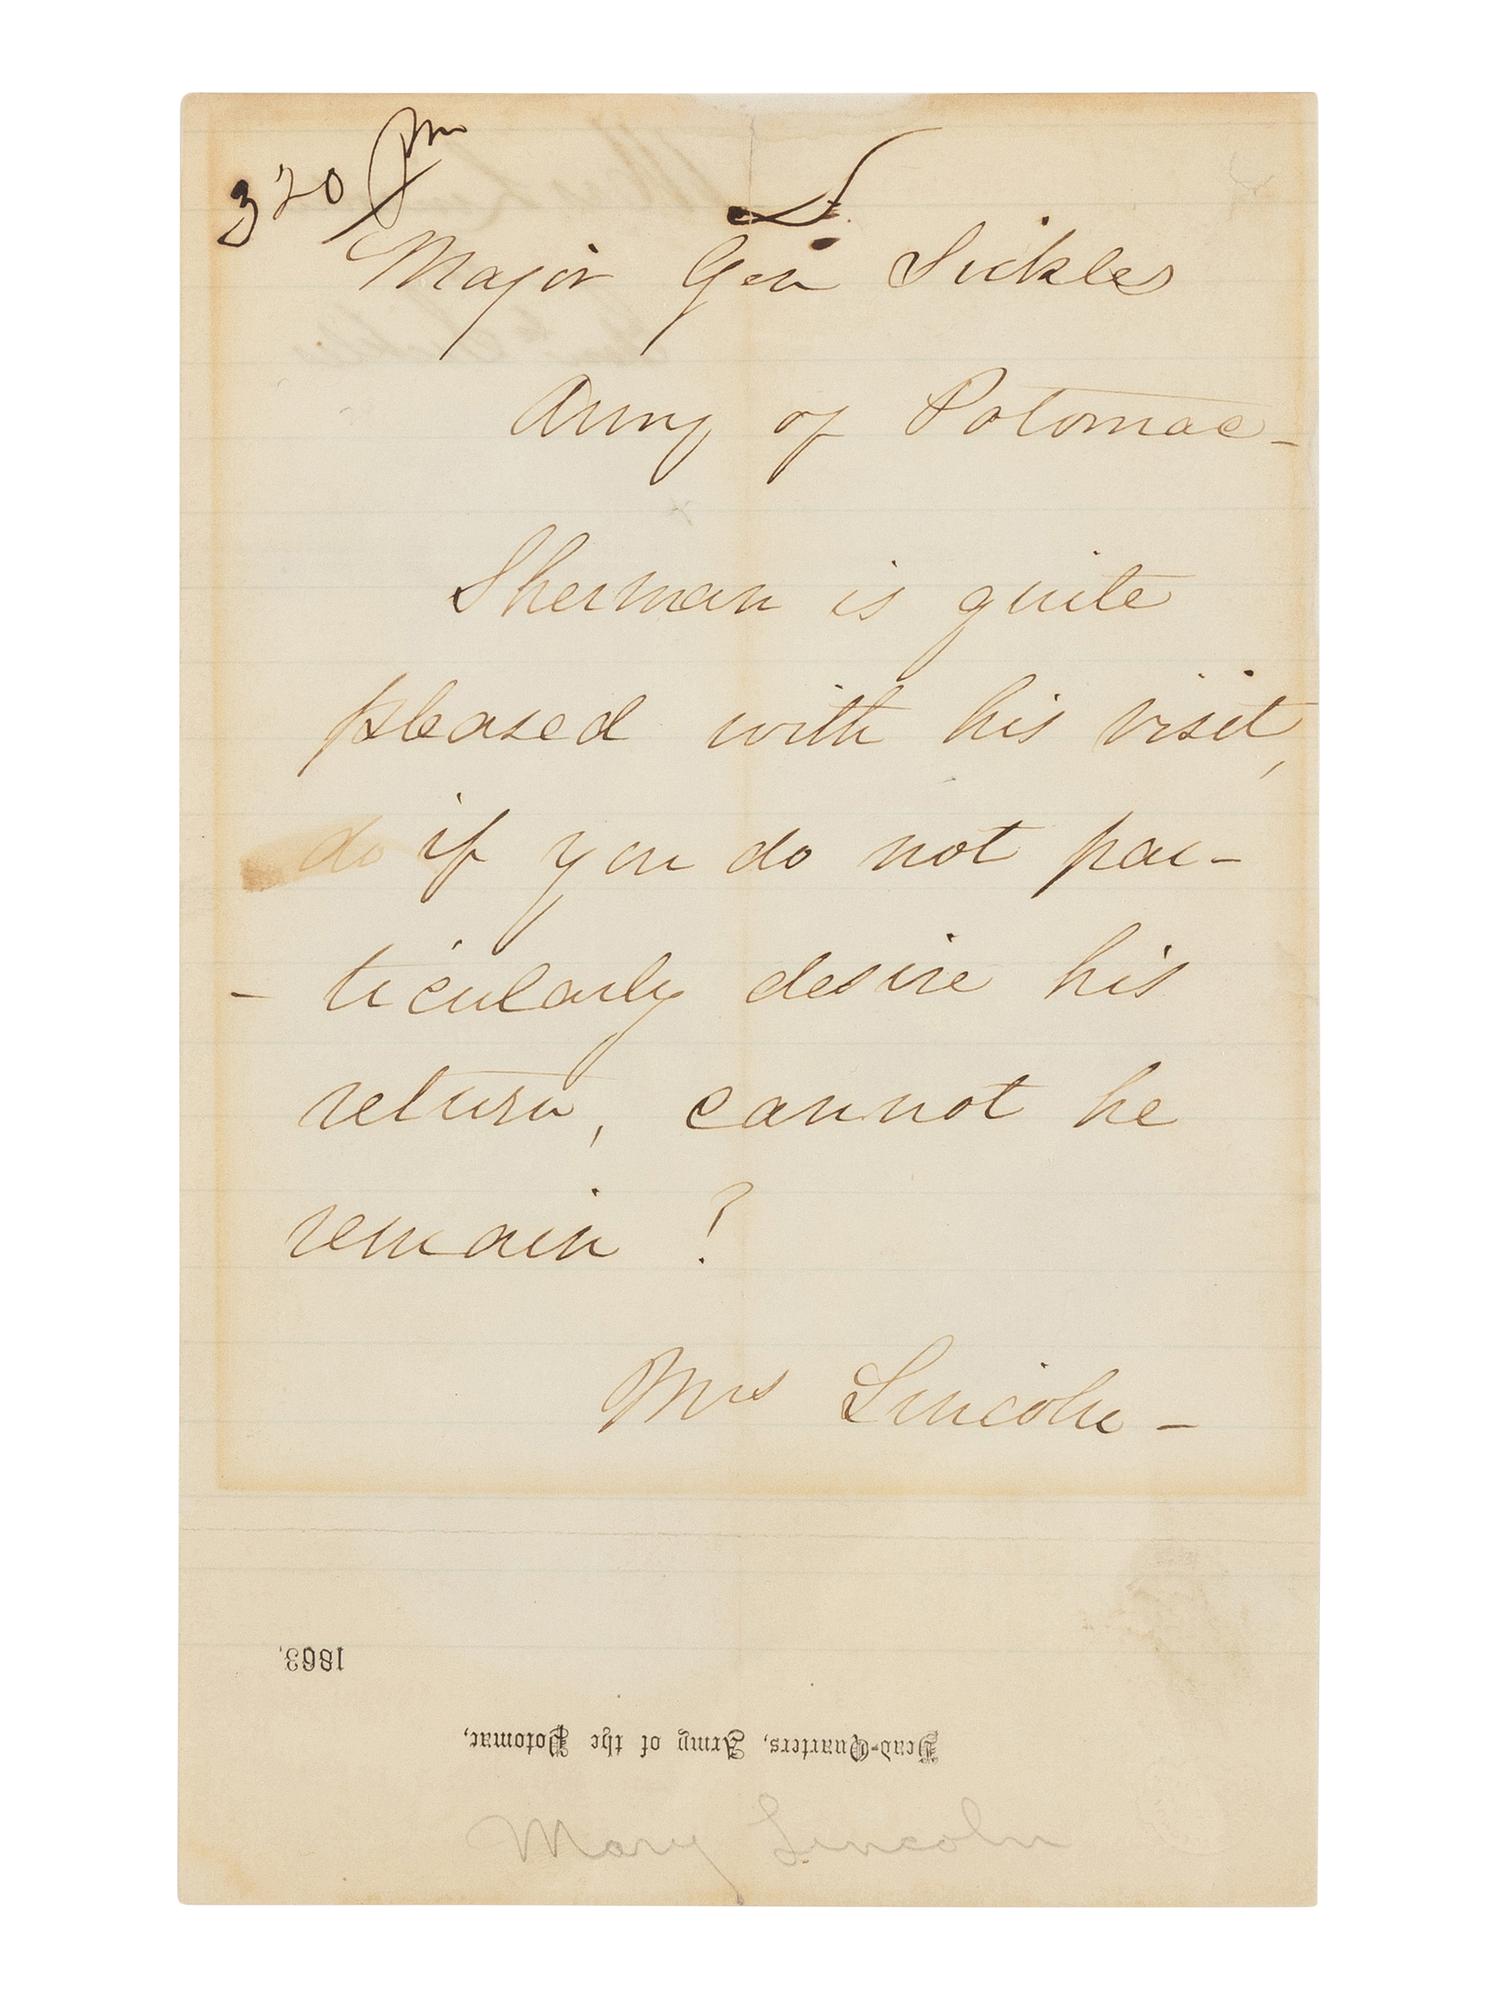 3 20 Pm
Major Gen Sickles
Army of Potomac -
Sherman is quite
pleased with his visit,
do if you do not par-
- ticularly desire his
return, cannot he
remain ?
Mrs Lincoln -
1863.
Head-Quarters, Army of the Potomac,
Mary Lincoln